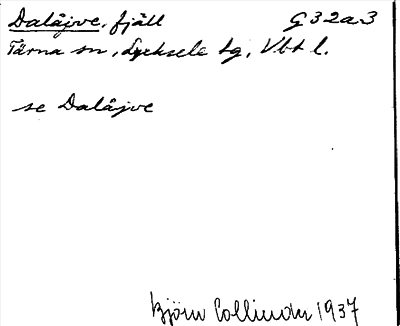 Dalåjve, fjäll G32a3
Tärna sn, Lycksele lg, Vbt l.
se Dalåjve
Björn Collinder 1937